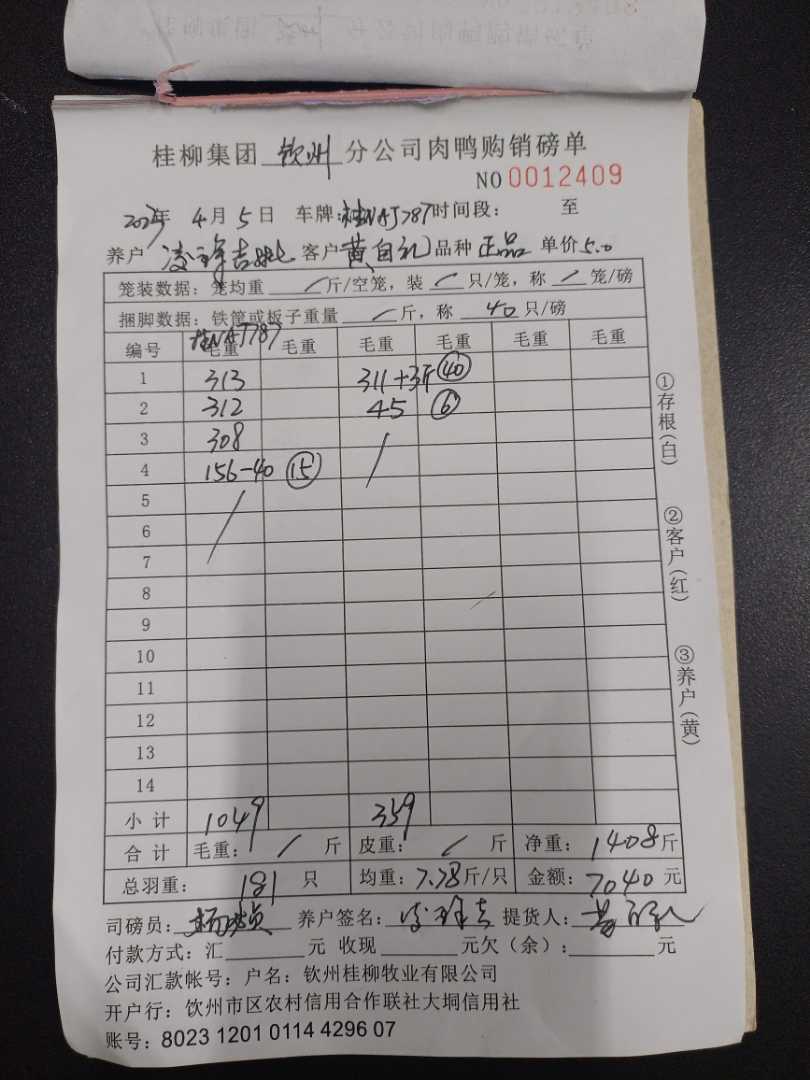 桂柳集团 钦州 分公司肉鸭购销磅单
NO 0012409
年 4月5日 车牌:桂NAJ787 时间段: 至
养户 客户 黄自礼 品种 正品 单价 5.0
笼装数据:笼均重 / 斤/空笼,装 / 只/笼,称 / 笼/磅
捆脚数据:铁筐或板子重量 / 斤,称 40 只/磅
桂NAJ787
编号 毛重 毛重 毛重 毛重 毛重 毛重
1 313 311+3斤 40
2 312 45 6
3 308 /
4 156-40 15
5 /
6
7
8
9
10
11
12
13
14
小计 1049 359
合计 毛重: / 斤 皮重: / 斤 净重: 1408斤
总羽重: 181 只 均重: 7.78斤/只 金额: 7040元
司磅员: 养户签名: 提货人:
付款方式:汇 元 收现 元欠(余): 元
公司汇款帐号:户名:钦州桂柳牧业有限公司
开户行:饮州市区农村信用合作联社大垌信用社
账号:8023 1201 0114 4296 07
①存根(白)
②客户(红)
③养户(黄)